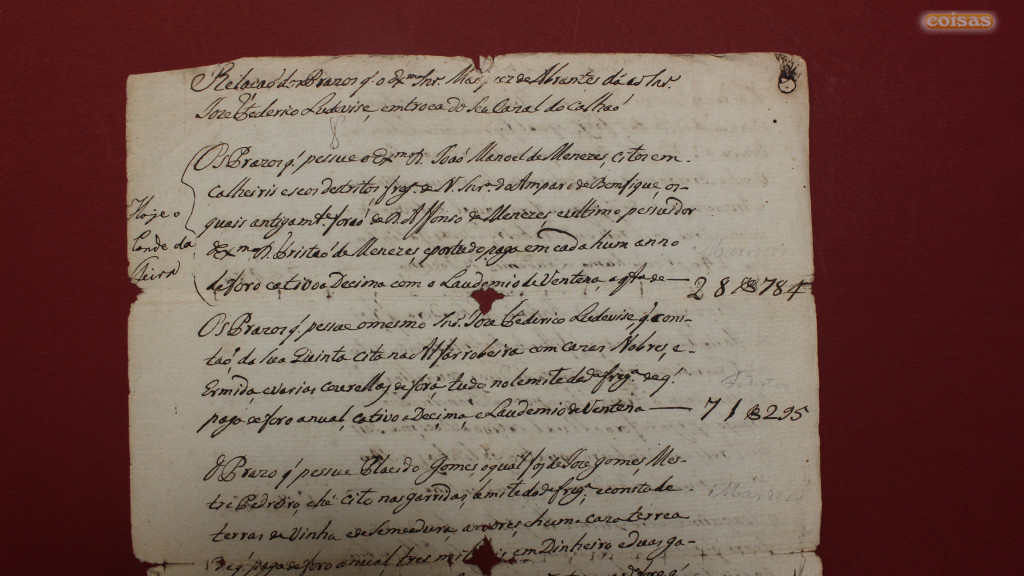 coisas
Relacaõ dos Prazos q̃ o Ex.mo Snr. Marquez de Abrantes dá ao Snr.
Joze Federico Ludovise, em troca do seu Cazal do Calhaó
Os Prazos q̃ pessue o Ex.mo D. Joaõ Manoel de Menezes, citos em
Calheiris e seos destritos, frg.ª de N. Snr.ª do Amparo de Bemfique, os
quais antigam.te foraõ de D. Affonso de Menezes, e ultimo pessuidor
o Ex.mo D. Tristaõ de Menezes, e por tudo paga em cada hum anno
de foro cativo a Decima com o Laudemio de Ventena a q.tia de — 281$784
Hoje o
Conde da
Os Prazos q̃ pessue o mesmo Snr. Joze Federico Ludovise, q̃ cons-
taõ, da sua Quinta cita na Alfarrobeira com cazas Nobres, e
Ermida e varias courellas de fora tudo no lemite da d.ª frg.ª de q̃
paga de foro anual, cativo a Decima, e Laudemio de Ventena — 71$295
O Prazo q̃ pessue Placido Gomes, o qual foj de Joze Gomes, Mes-
tre Pedreiro, e hé cito nas garridas, lemite da d.ª frg.ª e consta de
terras de Vinha e de Semeadura, arvores, e huma caza terrea
de q̃ paga de foro anual, tres mil reis em Dinheiro e duas ga-